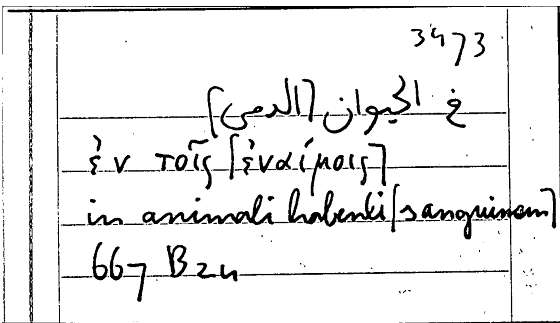 3473
في الحيوان [الدمى]
ἐν τοῖς [ἐναίμοις]
in animali habenti [sanguinem]
667 B 24